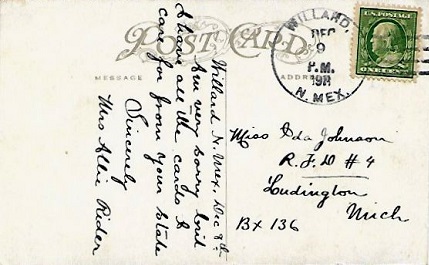 POST CARD
MESSAGE
ADDRESS
WILLARD,
DEC
9
P.M.
1911
N. MEX.
U.S. POSTAGE
ONE CENT
Willard N. Mex. Dec 8th
Am very sorry but
I have all the cards I
care for from your state
Sincerely
Mrs Allie Rider
Miss Ida Johnson
R.F.D # 4
Ludington
Mich
Bx 136